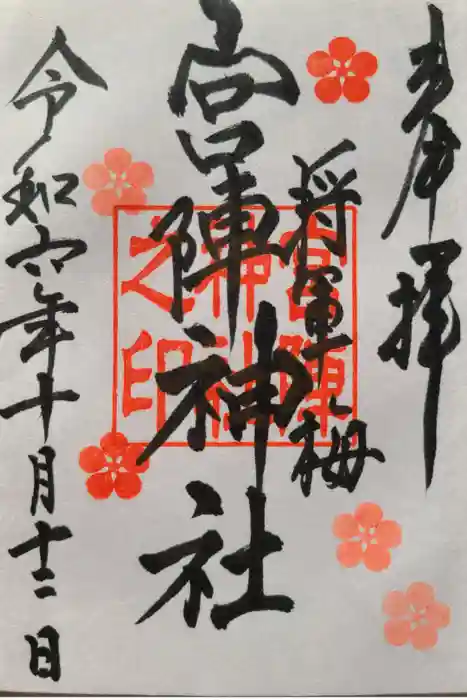 奉拝
将軍梅
宮陣神社
宮陣神社之印
令和六年十月十二日